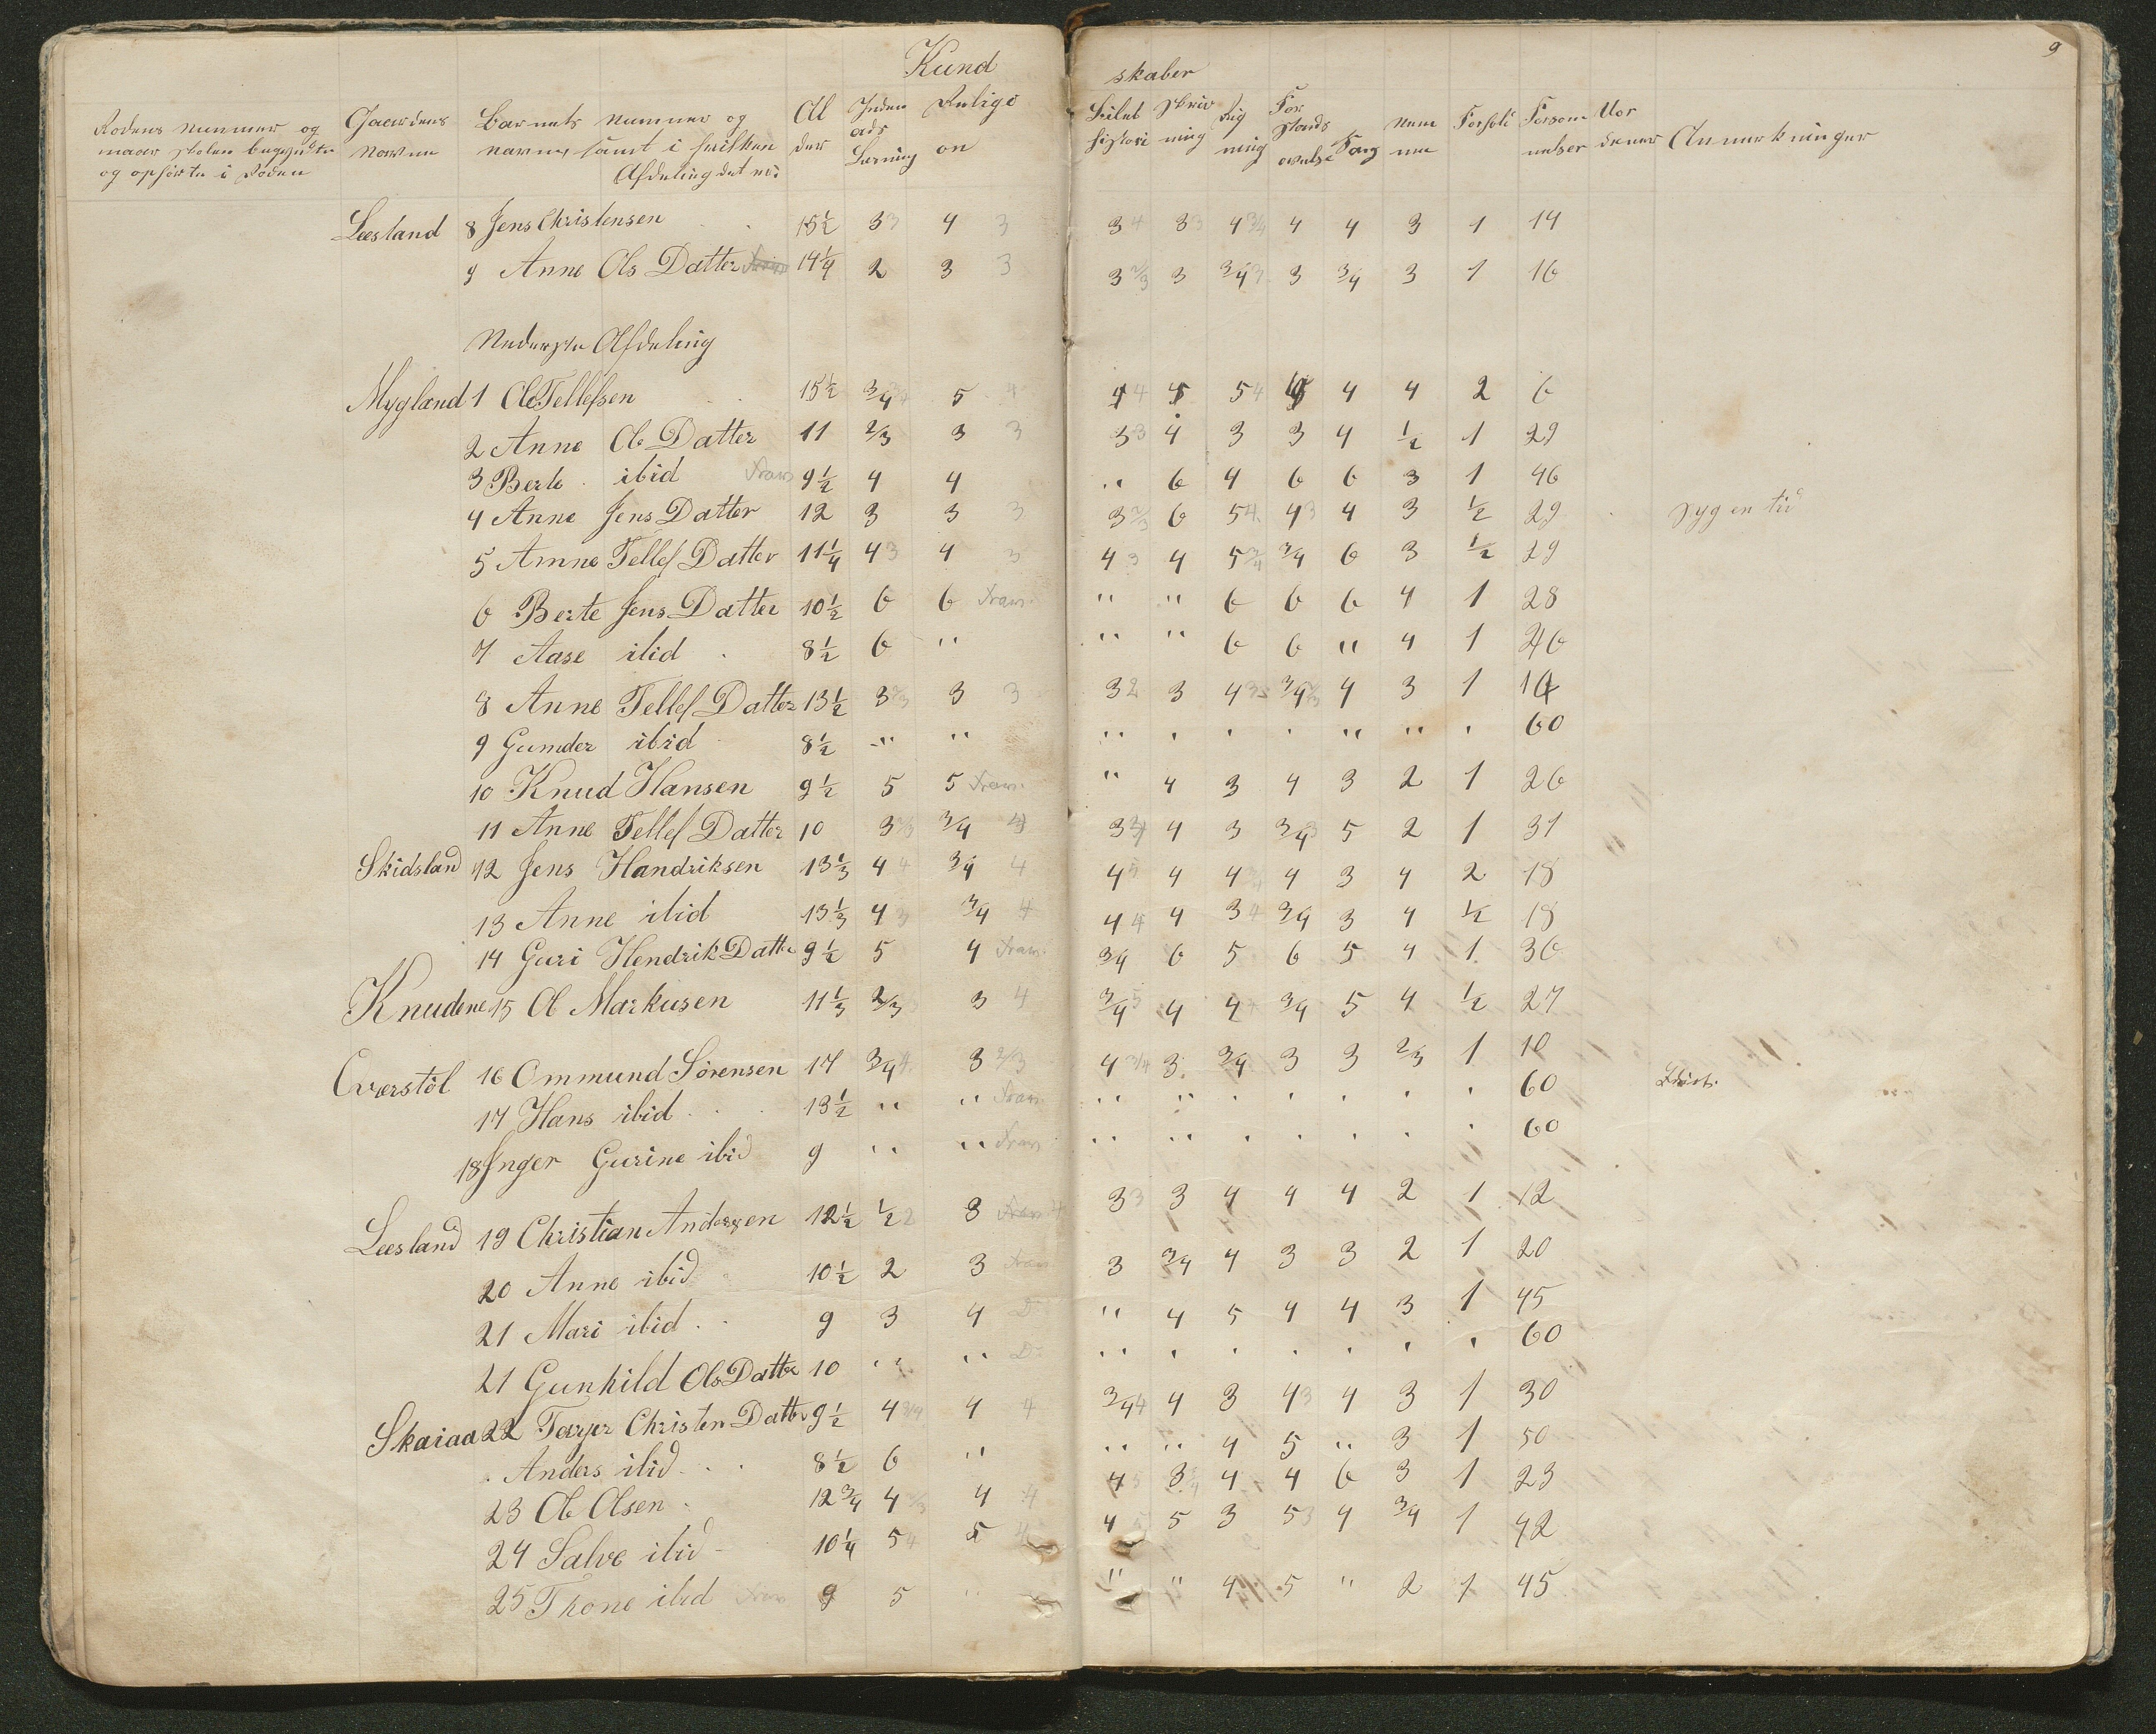 9
Kund skaber
Rodens nummer og naar skolen begyndte og ophørte i Roden
Gaardens navne
Barnets nummer og navne, samt i hvilken Afdeling det er:
Al der
Inden ads Læsning
Religi on
Bibel historie
Skriv ning
Reg ning
For stands øvelse
Sang
Nem me
Forhold
Forsøm melser
Mo derer
Anmerkninger
Leesland 8 Jens Christensen 15½ 3 3 4 3 3 4 3 3 4 3/4 4 4 3 1 14
9 Anne Ols Datter 14¼ 2 3 3 3 2/3 3 3/4 3 3 3/4 3 1 16
Nederste Afdeling
Mygland 1 Ole Tellefsen 15½ 3/4 5 4 4 4 5 4 4 4 2 6
2 Anne Ols Datter 11 2/3 3 3 3 3 4 3 3 4 ½ 1 29
3 Berte ibid frav 9½ 4 4 " 6 4 6 6 3 1 46
4 Anne Jens Datter 12 3 3 3 3 2/3 6 5 4 4 3 4 3 ½ 29 syg en tid
5 Anne Tellef Datter 11¼ 4 3 4 3 4 3 4 5 3/4 3/4 6 3 ½ 29
6 Berte Jens Datter 10½ 6 6 frav. " " 6 6 6 4 1 28
7 Aase ibid 8½ 6 " " " 6 6 " 4 1 46
8 Anne Tellef Datter 13½ 3 2/3 3 3 3 2 3 4 3 3/4 4 3 1 14
9 Gumder ibid 8½ " " " " " " " " " 60
10 Knud Hansen 9½ 5 5 frav. " 4 3 4 3 2 1 26
11 Anne Tellef Datter 10 3 2/3 3/4 4 3 4 4 3 3/4 3 5 2 1 31
Skidsland 12 Jens Handriksen 13⅓ 4 4 3/4 4 4 5 4 4 3/4 4 3 4 2 18
13 Anne ibid 13⅓ 4 3 3/4 4 4 4 4 3 4 3/4 3 4 ½ 18
14 Guri Hendrik Datter 9½ 5 4 frav. 3/4 6 5 6 5 4 1 36
Knudene 15 Ole Markusen 11⅓ 2/3 3 3 4 3/4 5 4 4 4 3/4 5 4 ½ 27
Overstöl 16 Ommund Sörensen 14 3/4 4 3 2/3 4 3/4 3 3/4 3 3 2/3 1 10
17 Hans ibid 13½ " " frav. " " " " " " " 60 Idiot.
18 Inger Gurine ibid 9 " " frav " " " " " " " 60
Leesland 19 Christian Andersen 12½ ½ 2 3 frav 3 3 3 4 4 4 2 1 12
20 Anne ibid 10½ 2 3 frav. 3 3/4 4 3 3 2 1 20
21 Mari ibid 9 3 4 D° " 4 5 4 4 3 1 45
21 Gunhild Ols Datter 10 " " D° " " " " " " " 60
Skaiaa 22 Tarjer Christen Datter 9½ 4 3/4 4 4 3/4 4 4 3 4 3 4 3 1 30
Anders ibid 8½ 6 " " " 4 5 " 3 1 50
23 Ole Olsen 12¾ 4 2/3 4 4 4 5 3 3/4 4 4 6 3 1 23
24 Salve ibid 10¼ 5 4 5 4 4 5 5 3 5 3 4 3/4 1 42
25 Thone ibid frav 9 5 " " " 4 5 " 2 1 45